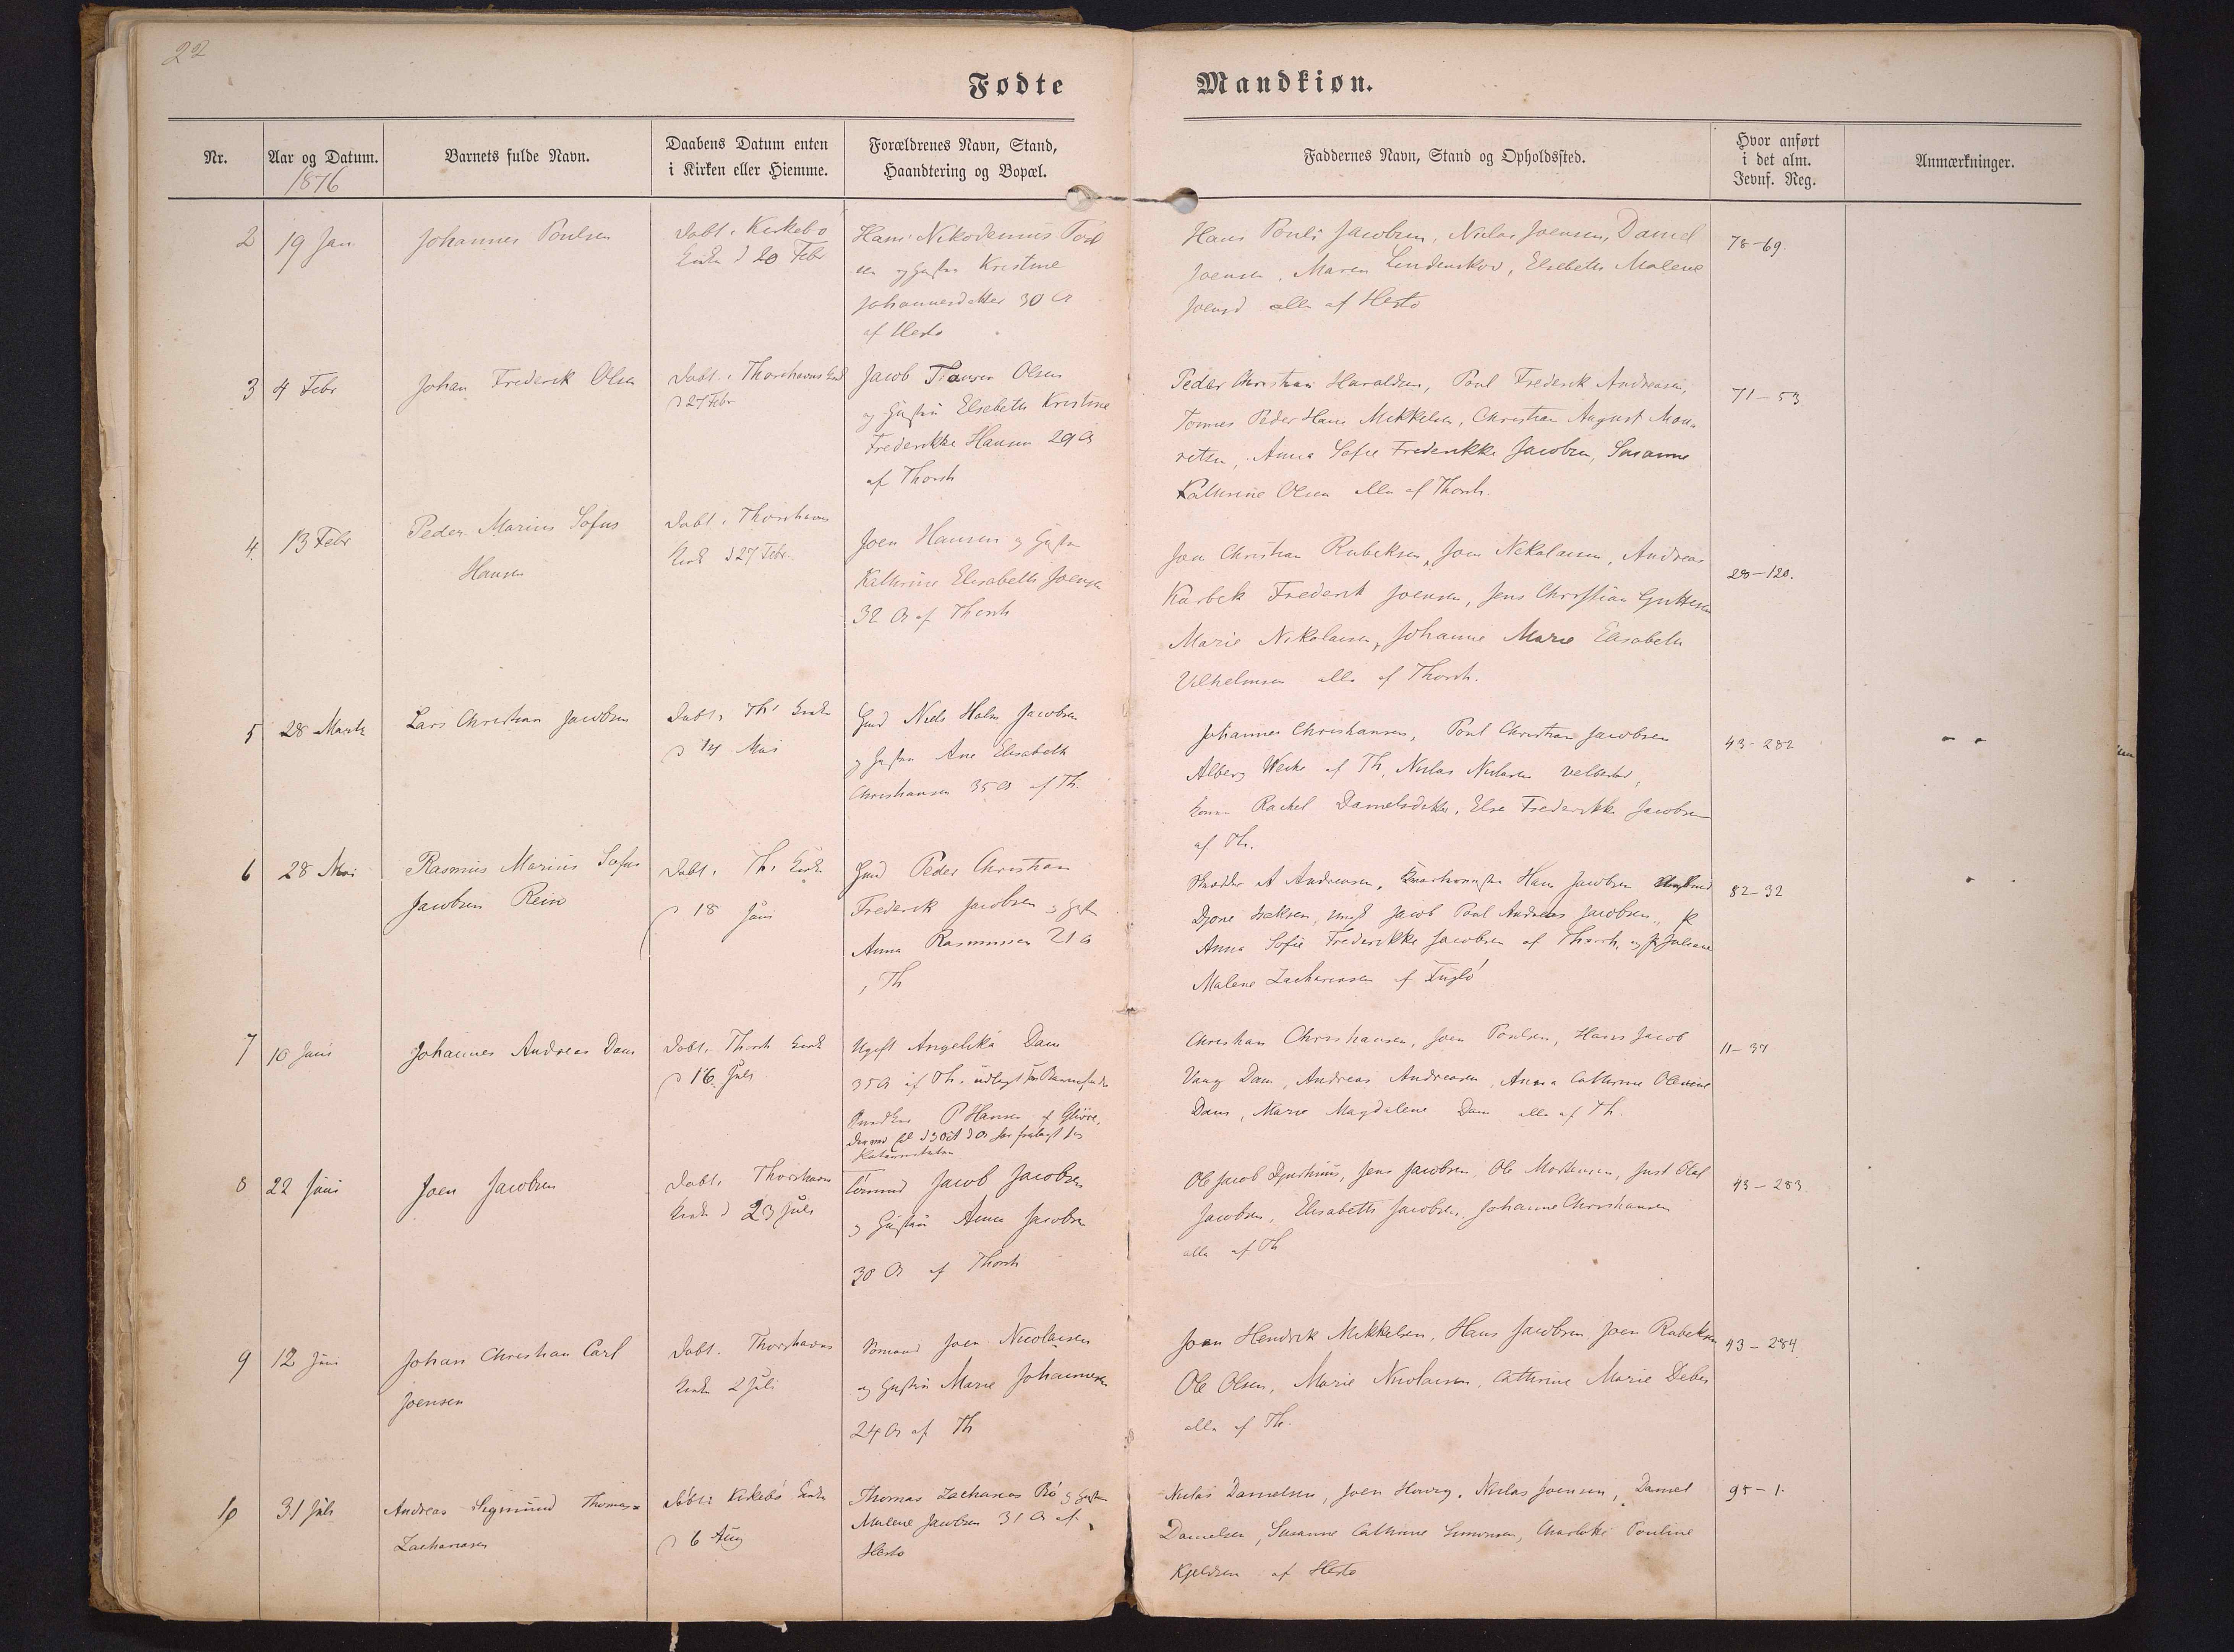 22
Fødte
Mandkiøn.
Nr.
Aar og Datum.
1876
Barnets fulde Navn.
Daabens Datum enten
i Kirken eller Hiemme.
Forældrenes Navn, Stand,
Haandtering og Bopæl.
Faddernes Navn, Stand og Opholdssted.
Hvor anført
i det alm.
Jevnf. Reg.
Anmærkninger.
2
19 Jan
Johannes Poulsen
Døbt i Kirkebø
Kirke d 20 Febr
Hans Nikodemus
Kristine
Johannesdatter 30 A
af Hestø
Hans Pouli Jacobsen, Niclas Joensen, Daniel
Joensen, Maren Lindenskov, Elsebeth Malene
Joensd alle af Hestø
78-69.
3
4 Febr
Johan Frederik Olsen
Døbt i Thorshavns Kirk
d 27 Febr
Jacob Olsen
og Hustru Elsebeth Kristine
Frederikke Hansen 29 A
af Thorsh
Peder Christian Haraldsen, Poul Frederik Andreasen,
Tomas Peder Hans Mikkelsen, Christian August Mou-
ritsen, Anna Sofie Frederikke Jacobsen, Susanne
Kathrine Olsen alle af Thorsh.
71-53
4.
13 Febr
Peder Marius Sofus
Hansen
Døbt i Thorshavns
Kirk d 27 Febr.
Joen Hansen og Hustru
Kathrine Elisabeth Joensen
32 A af Thorsh
Joen Christian Rubeksen, Joen Nikolaisen, Andreas
Frederik Joensen, Jens Christian Guttesen
Marie Nikolaisen, Johanne Marie Elisabeth
Vilhelmsen alle af Thorsh.
28-120.
5
28 Marts
Lars Christian Jacobsen
Døbt i Th Kirke
d 14 Mai
Niels Holm Jacobsen
og Hustru Ane Elisabeth
Christiansen 35 A af Th.
Johannes Christiansen, Poul Christian Jacobsen
Alberg Weihe af Th, Niclas Niclasen Velbestad,
Kone Rachel Danielsdatter, Else Frederikke Jacobsen
af Th.
43-282
6
28 Mai
Rasmus Marius Sofus
Jacobsen Rein
Døbt i Ths Kirke
d 18 Juni
Peder Christian
Frederik Jacobsen og Hustru
Anna Rasmussen 21 A
i Th
A Andreasen, Hans Jacobsen
Djone Isaksen, Jacob Poul Andreas Jacobsen, P
Anna Sofie Frederikke Jacobsen af Thorsh. og P Juliane
Malene Zachariasen af Fuglø
82-32
7
10 Juni
Johannes Andreas Dam
Døbt i Thorsh Kirk
d 16 Juli
Ugift Angelika Dam
35 A af Th. udlagt som Barnefader
P Hansen af Gliøre.
Christian Christiansen, Joen Poulsen, Hans Jacob
Vang Dam, Andreas Andreasen, Anna Cathrine Olevine
Dam, Marie Magdalene Dam alle af Th.
11-37
8
22 Juni
Joen Jacobsen
Døbt i Thorshavns
Kirke d 23 Juli
Jacob Jacobsen
og Hustru Anna Jacobsen
30 A af Thorsh
Ole Jacob Djurhuus, Jens Jacobsen, Ole Mortensen, Just Olaf
Jacobsen, Elisabeth Jacobsen, Johanne Christiansen
alle af Th
43-283.
9
12 Juni
Johan Christian Carl
Joensen
Døbt i Thorshavns
Kirke 2 Juli
Sømand Joen Nicolaisen
og Hustru Marie Johannesen
24 A af Th
Joen Hendrik Mikkelsen, Hans Jacobsen, Joen Rubeksen
Ole Olsen, Marie Nicolaisen, Cathrine Marie Debes
alle af Th.
43-284.
10
31 Juli
Andreas Sigmund Thomas
Zachariasen
Døbt i Kirkebø Kirke
d 6 Aug
Thomas Zacharias og Hustru
Malene Jacobsen 31 A af
Hestø
Niclas Danielsen, Joen Niclas Joensen, Daniel
Danielsen, Susanne Cathrine Simonsen, Charlotte Pouline
Kjeldsen af Hestø
95-1.